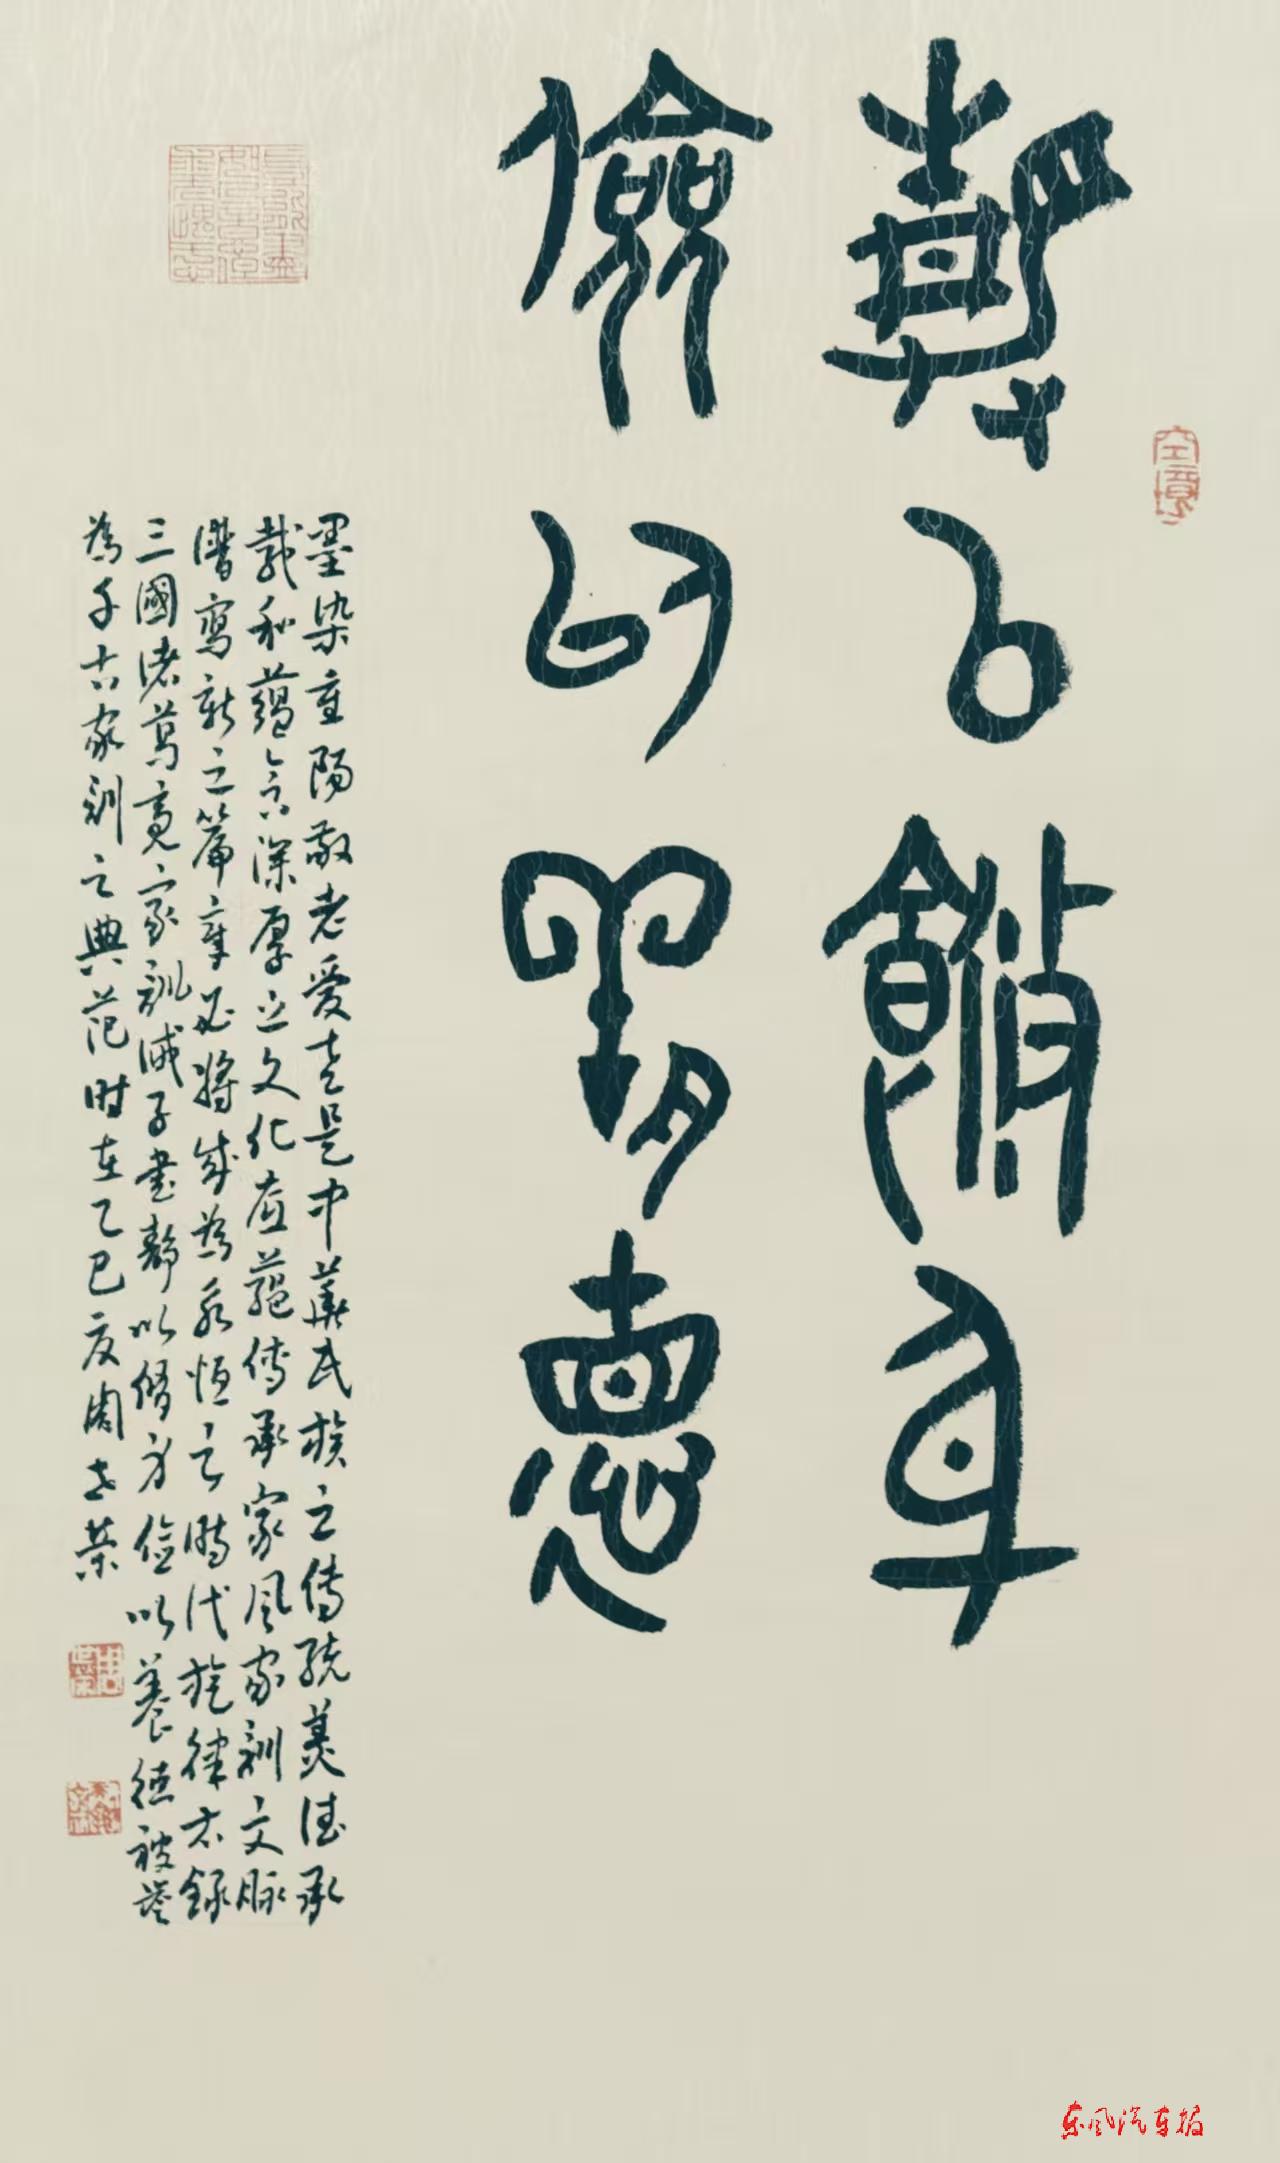 静以修身
俭以养德
墨染重阳敬老爱老是中华民族之传统美德承
载和蕴含深厚之文化底蕴传承家风家训文脉
谱写新之篇章必将成为永恒之时代旋律亦录
三國诸葛亮家训诫子書静以修身俭以養德被誉
为千古家训之典范时在乙巳夏周世荣
东风汽车报